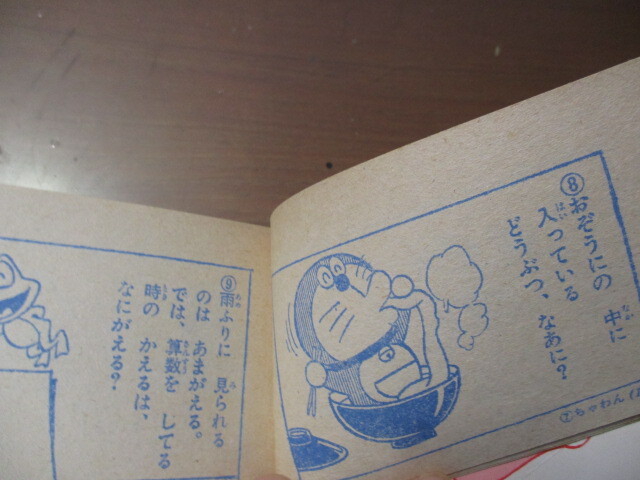 ⑧おぞうにの 中に
入っている
どうぶつ、なあに?
⑦ちゃわん
⑨雨ふりに 見られる
のは あまがえる。
では、算数を してる
時の かえるは、
なにがえる?